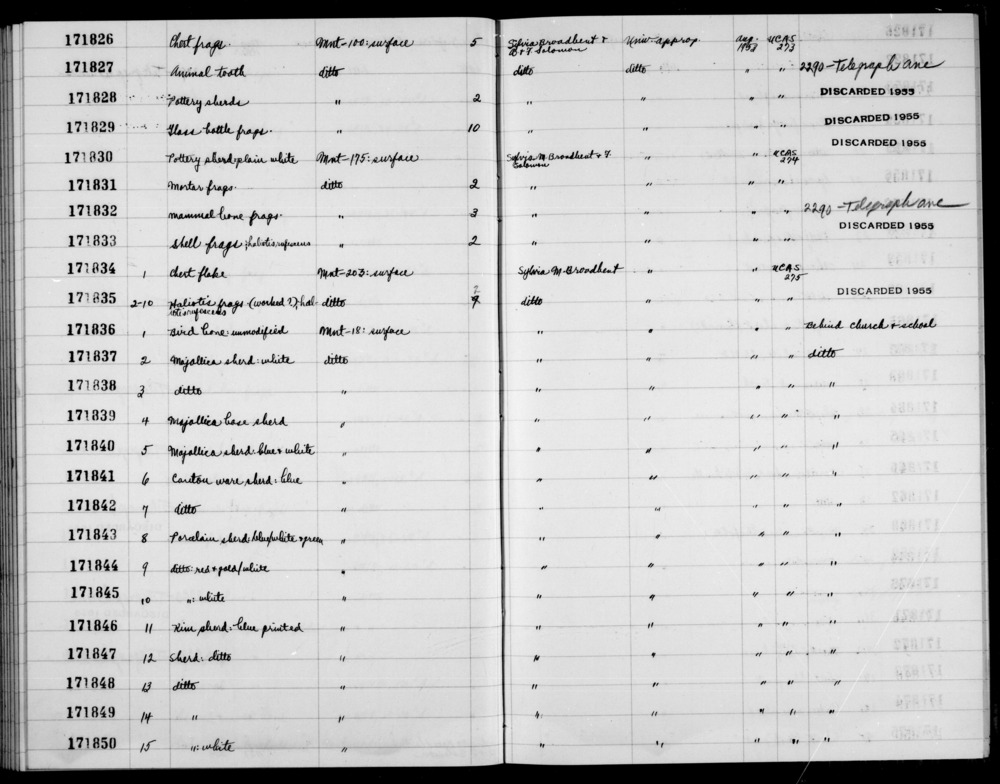 171826 Chert frags. Mnt-100: surface 5 Sylvia Broadbent & B & F Solomon Univ. approp. Aug. 1953 UCAS 273
171827 Animal tooth ditto ditto ditto " " 2290-Telegraph Ave
171828 Pottery sherds " 2 " " " DISCARDED 1955
171829 Glass bottle frags. " 10 " DISCARDED 1955
DISCARDED 1955
171830 Pottery sherd: plain white Mnt-175: surface Sylvia M. Broadbent & F. Solomon " " UCAS 274
171831 Mortar frags. ditto 2 " " " "
171832 Mammal bone frags. " 3 " " 2290-Telegraph Ave
171833 Shell frags: haliotis rufescens " 2 " " " " DISCARDED 1955
171834 1 Chert flake Mnt-203: surface Sylvia M. Broadbent " " UCAS 275
171835 2-10 Haliotis frags (worked?); haliotis rufescens ditto 9 ditto DISCARDED 1955
171836 1 Bird bone: unmodified Mnt-18: surface " " " " Behind church & school
171837 2 Majollica sherd: white ditto " " " " ditto
171838 3 ditto " " " " " "
171839 4 Majollica base sherd " " " " " "
171840 5 Majollica sherd: blue & white " " " " " "
171841 6 Canton ware sherd: blue " " " " " "
171842 7 ditto " " " " " "
171843 8 Porcelain sherd: blue/white & green " " " " " "
171844 9 ditto: red & gold/white " " " " " "
171845 10 ": white " " " " " "
171846 11 Rim sherd: blue printed " " " " " "
171847 12 Sherd: ditto " " " " " "
171848 13 ditto " " " " " "
171849 14 " " " " " " "
171850 15 ": white " " " " " "